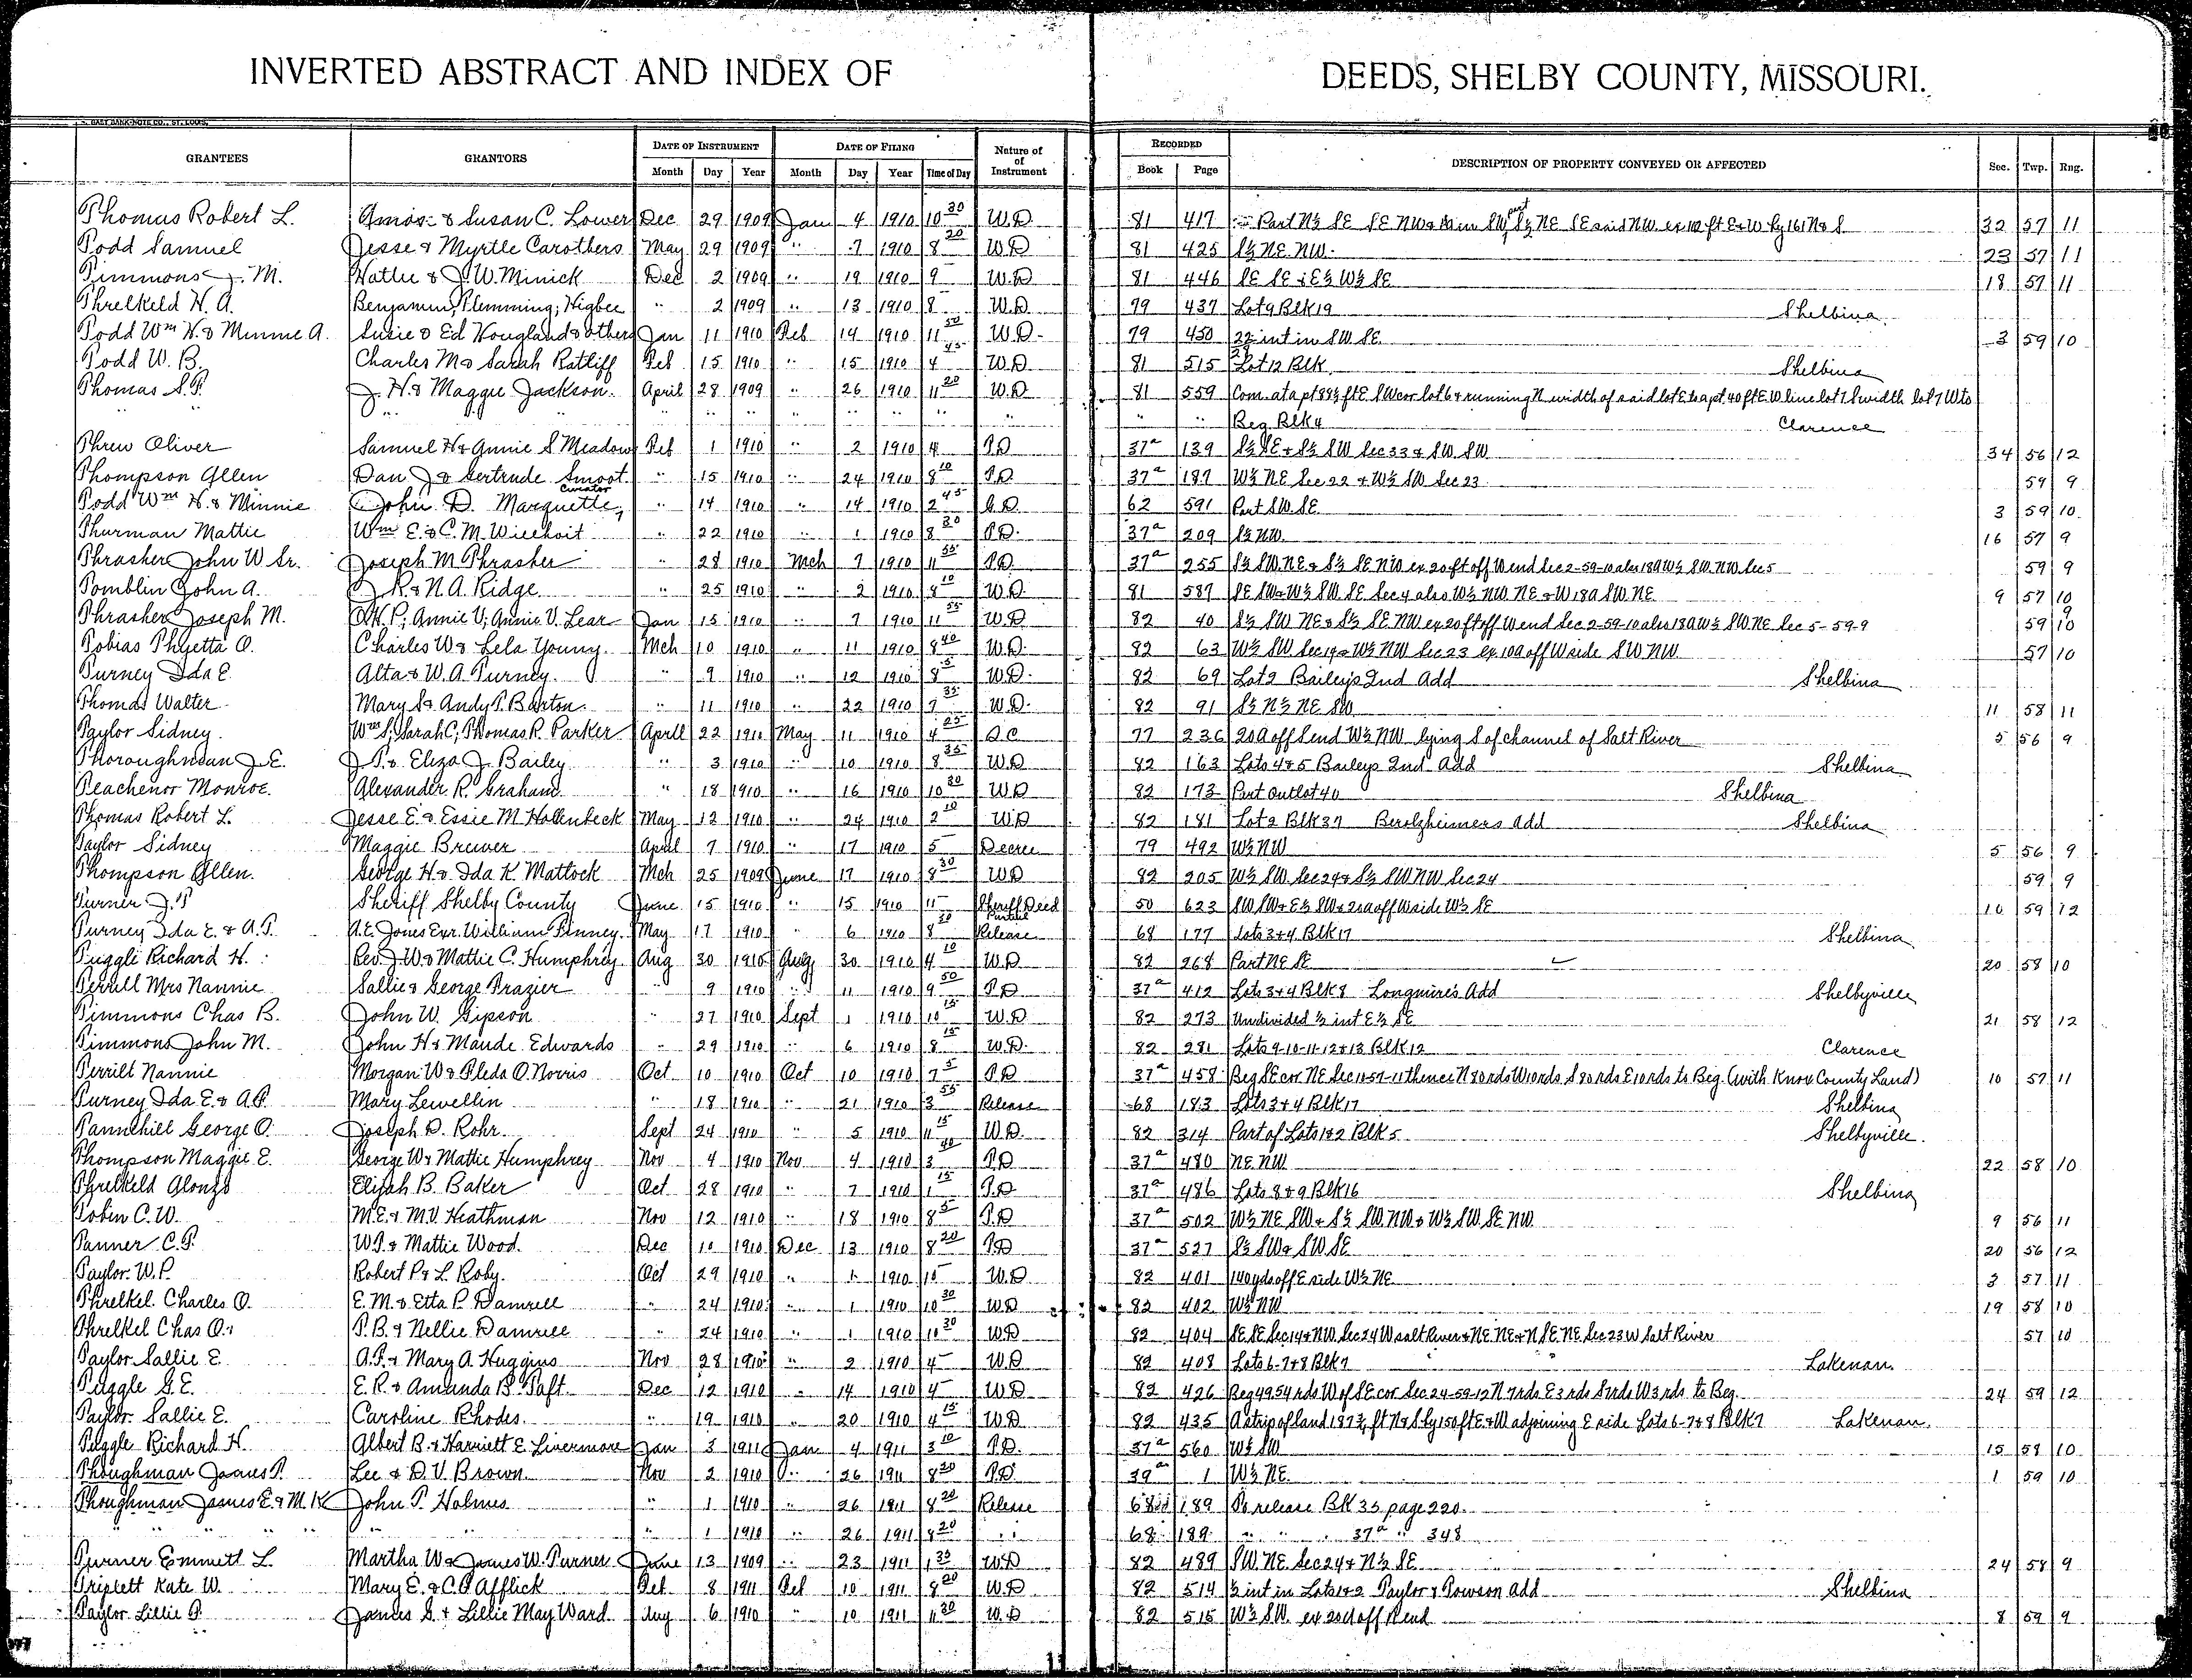 INVERTED ABSTRACT AND INDEX OF DEEDS, SHELBY COUNTY, MISSOURI.
GRANTEES GRANTORS DATE OF INSTRUMENT DATE OF FILING Nature of Instrument RECORDED DESCRIPTION OF PROPERTY CONVEYED OR AFFECTED Sec. Twp. Rng.
Month Day Year Month Day Year Time of Day Book Page
Thomas Robert L. Amos & Susan C. Lower Dec 29 1909 Jan 4 1910 10 30 W.D 81 417 Part N½ SE SE NW 32 57 11
Todd Samuel Jesse & Myrtle Carothers May 29 1909 " 7 1910 8 20 W.D 81 425 S½ NE NW 23 57 11
Timmons J. M. Hattie & J. W. Minick Dec 2 1909 " 19 1910 9 W.D 81 446 SE SE & E½ W½ SE 18 57 11
Threlkeld H. A. Benjamin, Flemming; Higbee " 2 1909 " 13 1910 8 W.D 79 437 Lot 9 Blk 19 Shelbina
Todd Wm H. & Minnie A. Susie & Ed Hougland & others Jan 11 1910 Feb 14 1910 11 50 W.D 79 450 int in SW SE 3 59 10
Todd W. B. Charles M & Sarah Ratliff Feb 15 1910 " 15 1910 4 45 W.D 81 515 Lot 12 Blk Shelbina
Thomas S. T. J. H. & Maggie Jackson April 28 1909 " 26 1910 11 20 W.D 81 559 Com. at a pt 89½ ft E SW cor lot 6 & running N width of said lot E to a pt 40 ft E W line lot 7 S width lot 7 W to
" " " " " " " " " " " " Beg Blk 4 Clarence
Threw Oliver Samuel H & Annie S Meadow Feb 1 1910 " 2 1910 4 T.D 37a 139 S½ SE & S½ SW Sec 33 & SW SW 34 56 12
Thompson Allen Dan J & Gertrude Smoot " 15 1910 " 24 1910 8 10 T.D 37a 187 W½ NE Sec 22 & W½ SW Sec 23 59 9
Todd Wm H. & Minnie John D. Marquette, Curator " 14 1910 " 14 1910 2 45 C.D 62 591 Part SW SE 3 59 10
Thurman Mattie Wm E. & C. M. Wilhoit " 22 1910 " 1 1910 8 30 T.D. 37a 209 S½ NW 16 57 9
Thrasher John W Sr. Joseph M. Thrasher " 28 1910 Mch 7 1910 11 55 T.D 37a 255 S½ SW NE & S½ SE NW ex 20 ft off W end Sec 2-59-10 also 18 A W½ SW NW Sec 5 59 9
Tomblin John A. J. R. & N. A. Ridge " 25 1910 " 2 1910 8 10 W.D. 81 587 SE SW & W½ SW SE Sec 4 also W½ NW NE & W 18 A SW NE 9 57 10
Thrasher Joseph M. O. H. P; Annie V; Annie V. Lear Jan 15 1910 " 7 1910 11 55 W.D 82 40 S½ SW NE & S½ SE NW ex 20 ft off W end Sec 2-59-10 also 18 A W½ SW NE Sec 5-59-9 59 10 9
Tobias Phyetta O. Charles W & Lela Young Mch 10 1910 " 11 1910 8 40 W.D. 82 63 W½ SW Sec 14 & W½ NW Sec 23 ex 10 A off W side SW NW 57 10
Turney Ida E. Alta & W. A. Turney. " 9 1910 " 12 1910 8 5 W.D. 82 69 Lot 2 Bailey's 2nd Add Shelbina
Thomas Walter Mary S & Andy T. Barton " 11 1910 " 22 1910 9 35 W.D. 82 91 S½ N½ NE SW 11 58 11
Taylor Sidney Wm S; Sarah C; Thomas R. Parker April 22 1910 May 11 1910 4 25 Q.C 77 236 20 A off S end W½ NW lying S of channel of Salt River 5 56 9
Thoroughman J. E. J. T. & Eliza J. Bailey " 3 1910 " 10 1910 8 35 W.D 82 163 Lots 4 & 5 Baileys 2nd Add Shelbina
Teachenor Monroe. Alexander R. Graham " 18 1910 " 16 1910 10 30 W.D 82 173 Part Outlot 40 Shelbina
Thomas Robert L. Jesse E. & Essie M. Hollenbeck May 12 1910 " 24 1910 2 10 W.D 82 181 Lot 2 Blk 37 Berolzheimers Add Shelbina
Taylor Sidney Maggie Brewer April 7 1910 " 17 1910 5 Decree 79 492 W½ NW 5 56 9
Thompson Allen. George H. & Ida K. Mattock Mch 25 1909 June 17 1910 8 30 W.D 82 205 W½ SW Sec 24 & S½ SW NW Sec 24 59 9
Turner J. T Sheriff Shelby County June 15 1910 " 15 1910 11 Sheriff Deed 50 623 SW SW & E½ SW & 20 A off W side W½ SE 10 59 12
Turney Ida E. & A. T. A. E. Jones Exr. William Pinney. May 17 1910 " 6 1910 8 30 Partial Release 68 177 Lots 3 & 4 Blk 17 Shelbina
Tuggle Richard H. Geo. J. W. & Mattie C. Humphrey Aug 30 1910 Aug 30 1910 4 10 W.D 82 268 Part NE SE 20 58 10
Terrill Mrs Nannie Sallie & George Frazier " 9 1910 " 11 1910 9 50 T.D 37a 412 Lots 3 & 4 Blk 8 Longmire's Add Shelbyville
Timmons Chas B. John W. Gipson " 27 1910 Sept 1 1910 10 15 W.D 82 273 Undivided ½ int E½ SE 21 58 12
Timmons John M. John H & Maude Edwards " 29 1910 " 6 1910 8 15 W.D. 82 281 Lots 9-10-11-12 & 13 Blk 12 Clarence
Terrill Nannie Morgan W & Pleda O. Norris Oct 10 1910 Oct 10 1910 7 5 T.D 37a 458 Beg SE cor NE Sec 10-57-11 thence N 80 rds W 10 rds S 80 rds E 10 rds to Beg. (with Knox County Land) 10 57 11
Turney Ida E. & A. T. Mary Lewellin " 18 1910 " 21 1910 3 55 Release 68 183 Lots 3 & 4 Blk 17 Shelbina
Tannehill George O. Joseph D. Rohr. Sept 24 1910 " 5 1910 11 15 W.D. 82 314 Part of Lots 1 & 2 Blk 5 Shelbyville.
Thompson Maggie E. George W & Mattie Humphrey Nov 4 1910 Nov 4 1910 3 40 T.D 37a 480 NE NW 22 58 10
Threlkeld Alonzo Elijah B. Baker Oct 28 1910 " 7 1910 1 15 T.D 37a 486 Lots 8 & 9 Blk 16 Shelbina
Tobin C. W. M. E. & M. V. Heathman Nov 12 1910 " 18 1910 8 5 T.D 37a 502 W½ NE SW & S½ SW NW & W½ SW SE NW 9 56 11
Tanner C. T. W. T. & Mattie Wood. Dec 10 1910 Dec 13 1910 8 20 T.D 37a 527 S½ SW & SW SE 20 56 12
Taylor W. P. Robert P & L. Roby. Oct 29 1910 " 1 1910 10 W.D 82 401 140 yds off E side W½ NE 3 57 11
Threlkel Charles O. E. M. & Etta P. Damrell " 24 1910 " 1 1910 10 30 W.D 82 402 W½ NW 19 58 10
Threlkel Chas O. T. B. & Nellie Damrell " 24 1910 " 1 1910 10 30 W.D 82 404 SE SE Sec 14 & NW Sec 24 W salt River & NE NE & N SE NE Sec 23 W Salt River 57 10
Taylor Sallie E. A. F. & Mary A. Huggins Nov 28 1910 " 2 1910 4 W.D 82 408 Lots 6-7 & 8 Blk 7 Lakenan.
Tuggle G. E. E. R. & Amanda B. Taft. Dec 12 1910 " 14 1910 4 W.D 82 426 Beg 49.54 rds W of SE cor Sec 24-59-12 N 7 rds E 3 rds S 7 rds W 3 rds to Beg. 24 59 12
Taylor Sallie E. Caroline Rhodes. " 19 1910 " 20 1910 4 15 W.D 82 435 A strip of land 187½ ft N & S by 150 ft E & W adjoining E side Lots 6-7 & 8 Blk 7 Lakenan.
Tuggle Richard H. Albert B. & Harriett E. Livermore Jan 3 1911 Jan 4 1911 3 10 T.D. 37a 560 W½ SW 15 58 10
Thoughman James T. Lee & D. V. Brown Nov 2 1910 " 26 1911 8 20 T.D 39a 1 W½ NE. 1 59 10
Thoughman James E. & M. K John T. Holmes " 1 1910 " 26 1911 8 20 Release 68 189 To release BK 35 page 220.
" " " " " 1 1910 " 26 1911 8 20 " 68 189 " " 37a " 348
Turner Emmett L. Martha W & James W. Turner June 13 1909 " 23 1911 1 35 W.D 82 489 SW NE Sec 24 & N½ SE 24 58 9
Triplett Kate W. Mary E. & C. P Afflick Feb 8 1911 Feb 10 1911 8 20 W.D 82 514 ½ int in Lots 1 & 2 Taylor & Towson Add Shelbina
Taylor Lillie P. James S. & Lillie May Ward Aug 6 1910 " 10 1911 11 30 W.D 82 515 W½ SW. ex 20 A off N end 8 59 9